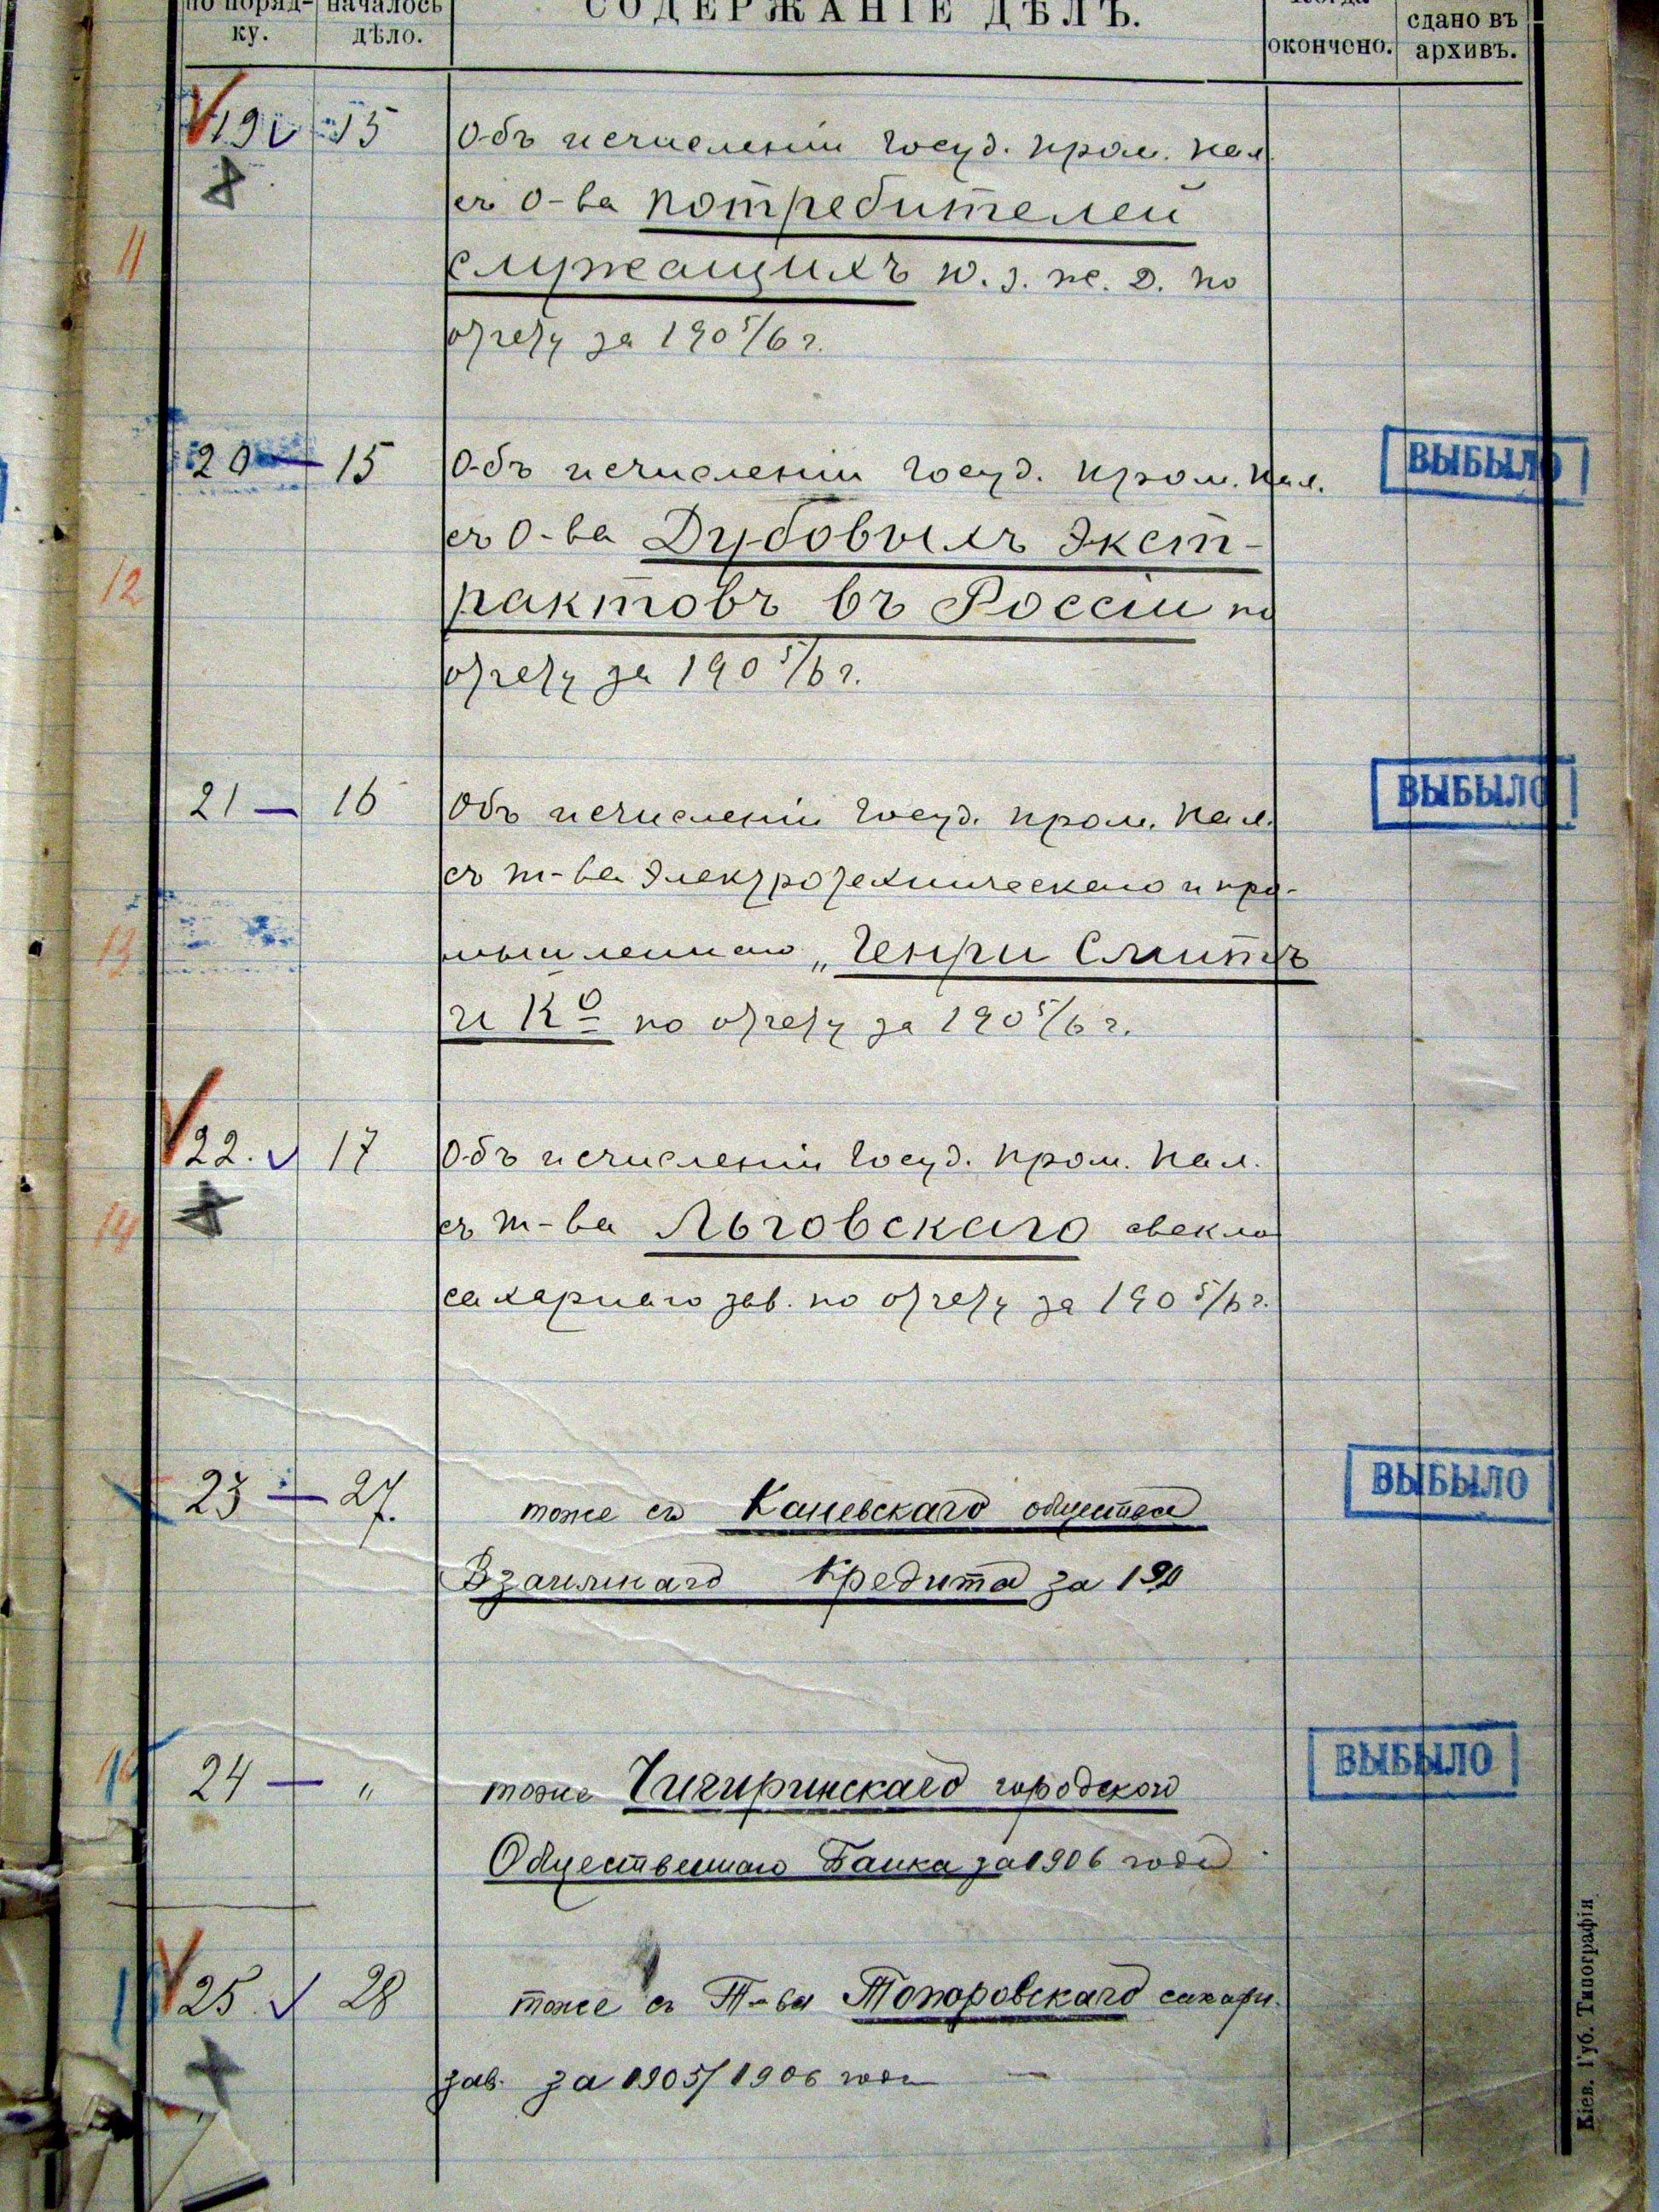 по поряд-
ку.
началось
дѣло.
СОДЕРЖАНІЕ ДѢЛЪ.
окончено.
сдано въ
архивъ.
19 15 Объ исчисленіи госуд. пром. нал.
съ О-ва потребителей
служащихъ Ю. З. ж. д. по
отчету за 1905/6 г.
11
20 — 15 Объ исчисленіи госуд. пром. нал. ВЫБЫЛО
съ О-ва Дубовыхъ Экст-
12
рактовъ въ Россіи по
отчету за 1905/6 г.
21 — 16 Объ исчисленіи госуд. пром. нал. ВЫБЫЛО
съ т-ва Электротехническаго и про-
13
мышленнаго „Генри Смитъ
и Ко по отчету за 1905/6 г.
22. 17 Объ исчисленіи госуд. пром. нал.
14
съ т-ва Льговскаго свекло
сахарнаго зав. по отчету за 1905/6 г.
23 — 27. тоже съ Каневскаго общества ВЫБЫЛО
Взаимнаго Кредита за 190
24 — „ тоже Чигиринскаго городского ВЫБЫЛО
Общественнаго Банка за 1906 годъ
25. 28 тоже съ Т-ва Топоровскаго сахарн.
зав. за 1905/1906 годъ —
Кіев. Губ. Типографія